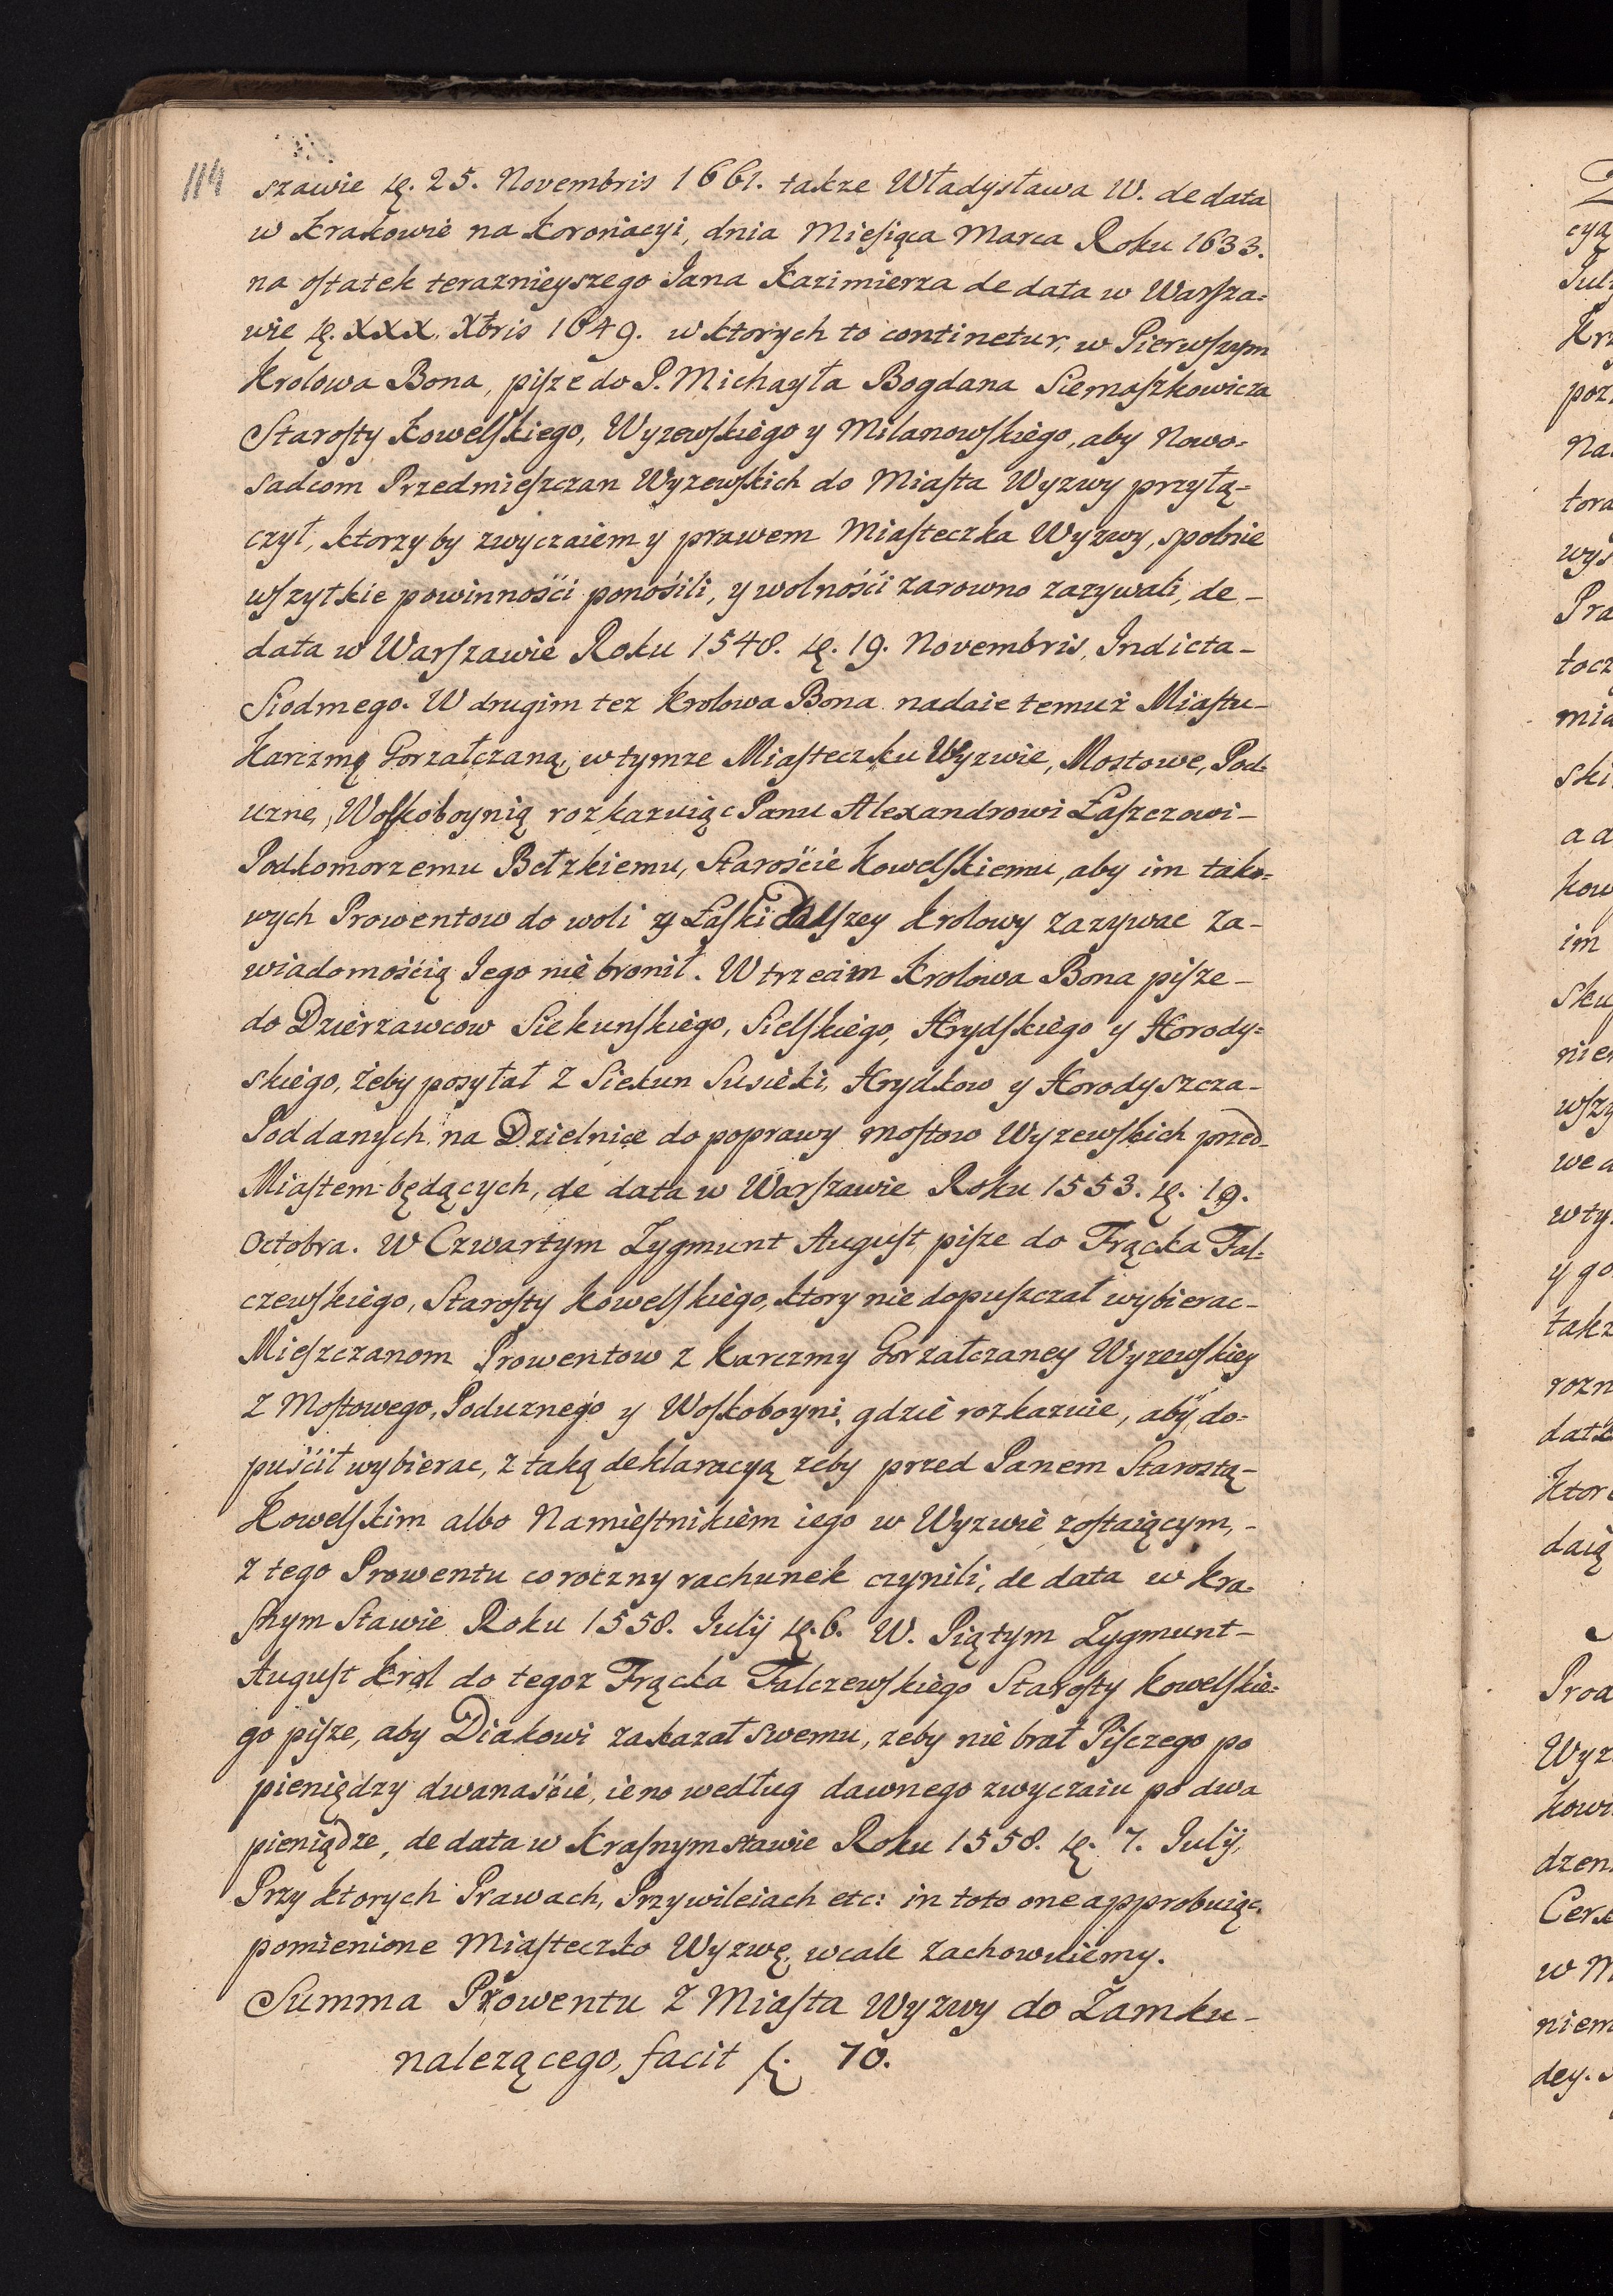 114
szawie d. 25. Novembris 1661. takze Władysława IV. de data
w Krakowie na Koronacyi, dnia Miesiąca Marca Roku 1633.
na ostatek teraznieyszego Jana Kazimierza de data w Warsza=
wie d. XXX. Xbris 1649. w ktorych to continetur, w Pierwszym
Krolowa Bona, pisze do P. Michayła Bogdana Siemaszkowicza
Starosty Kowelskiego, Wyzewskiego y Milanowskiego, aby Nowo=
sadcom Przedmieszczan Wyzewskich do Miasta Wyzwy przyłą=
czył, ktorzy by zwyczaiem y prawem Miasteczka Wyzwy, spolnie
wszytkie powinności ponosili, y wolności zarowno zazywali, de -
data w Warszawie Roku 1548. d. 19. Novembris, Indicta -
Siodmego. W drugim tez Krolowa Bona nadaie temuż Miastu -
Karczmę Gorzałczaną, w tymze Miasteczku Wyzwie, Mostowe, Pod=
uzne, Woskoboynią rozkazuiąc Panu Alexandrowi Łaszczowi -
Podkomorzemu Bełzkiemu, Staroście Kowelskiemu, aby im tako=
wych Prowentow do woli y Łaski Dalszey Krolowy zazywac za -
wiadomością Jego nie bronił. W trzecim Krolowa Bona pisze -
do Dzierzawcow Siekunskiego, Sielskiego, Hrydskiego y Horody=
skiego, żeby posyłał z Siekun Susieki, Hrydkow y Horodyszcza -
Poddanych na Dzielnice do poprawy mostow Wyzewskich przed -
Miastem będących, de data w Warszawie Roku 1553. d. 19.
Octobra. W Czwartym Zygmunt August pisze do Frącka Fal=
czewskiego, Starosty Kowelskiego, ktory nie dopuszczał wybierac -
Mieszczanom Prowentow z Karczmy Gorzałczaney Wyzewskiey
z Mostowego, Poduznego y Woskoboyni, gdzie rozkazuie, aby do=
puścił wybierac, z taką deklaracyą zeby przed Panem Starostą -
Kowelskim albo Namiestnikiem iego w Wyzwie zostaiącym, -
z tego Prowentu coroczny rachunek czynili, de data w Kra=
snym Stawie Roku 1558. July d. 6. W. Piątym Zygmunt -
August Krol do tegoz Frącka Falczewskiego Starosty Kowelskie=
go pisze, aby Diakowi zakazał swemu, zeby nie brał Pisczego po
pieniędzy dwanaście, ieno według dawnego zwyczaiu po dwa
pieniądze, de data w Krasnym stawie Roku 1558. d. 7. July,
Przy ktorych Prawach, Przywileiach etc: in toto one approbuiąc,
pomienione Miasteczko Wyzwę, wcale zachowuiemy.
Summa Prowentu z Miasta Wyzwy do Zamku -
nalezącego, facit f. 70.